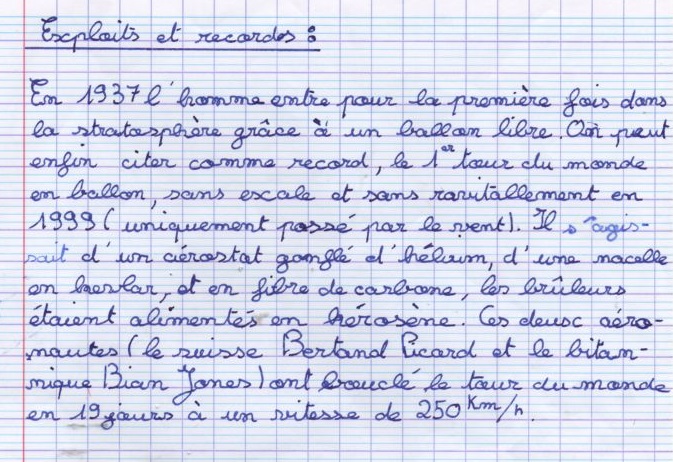 Exploits et records :
En 1937 l'homme entre pour la première fois dans
la stratosphère grâce à un ballon libre. On peut
enfin citer comme record, le 1er tour du monde
en ballon, sans escale et sans ravitallement en
1999 (uniquement possé par le vent). Il s'agis-
sait d'un aérostat gonflé d'hélium, d'une nacelle
en kevlar, et en fibre de carbone, les brûleurs
étaient alimentés en kérosène. Ces deux aéro-
nautes (le suisse Bertand Picard et le bitan-
nique Bian Jones) ont bouclé le tour du monde
en 19 jours à un vitesse de 250 Km/h.